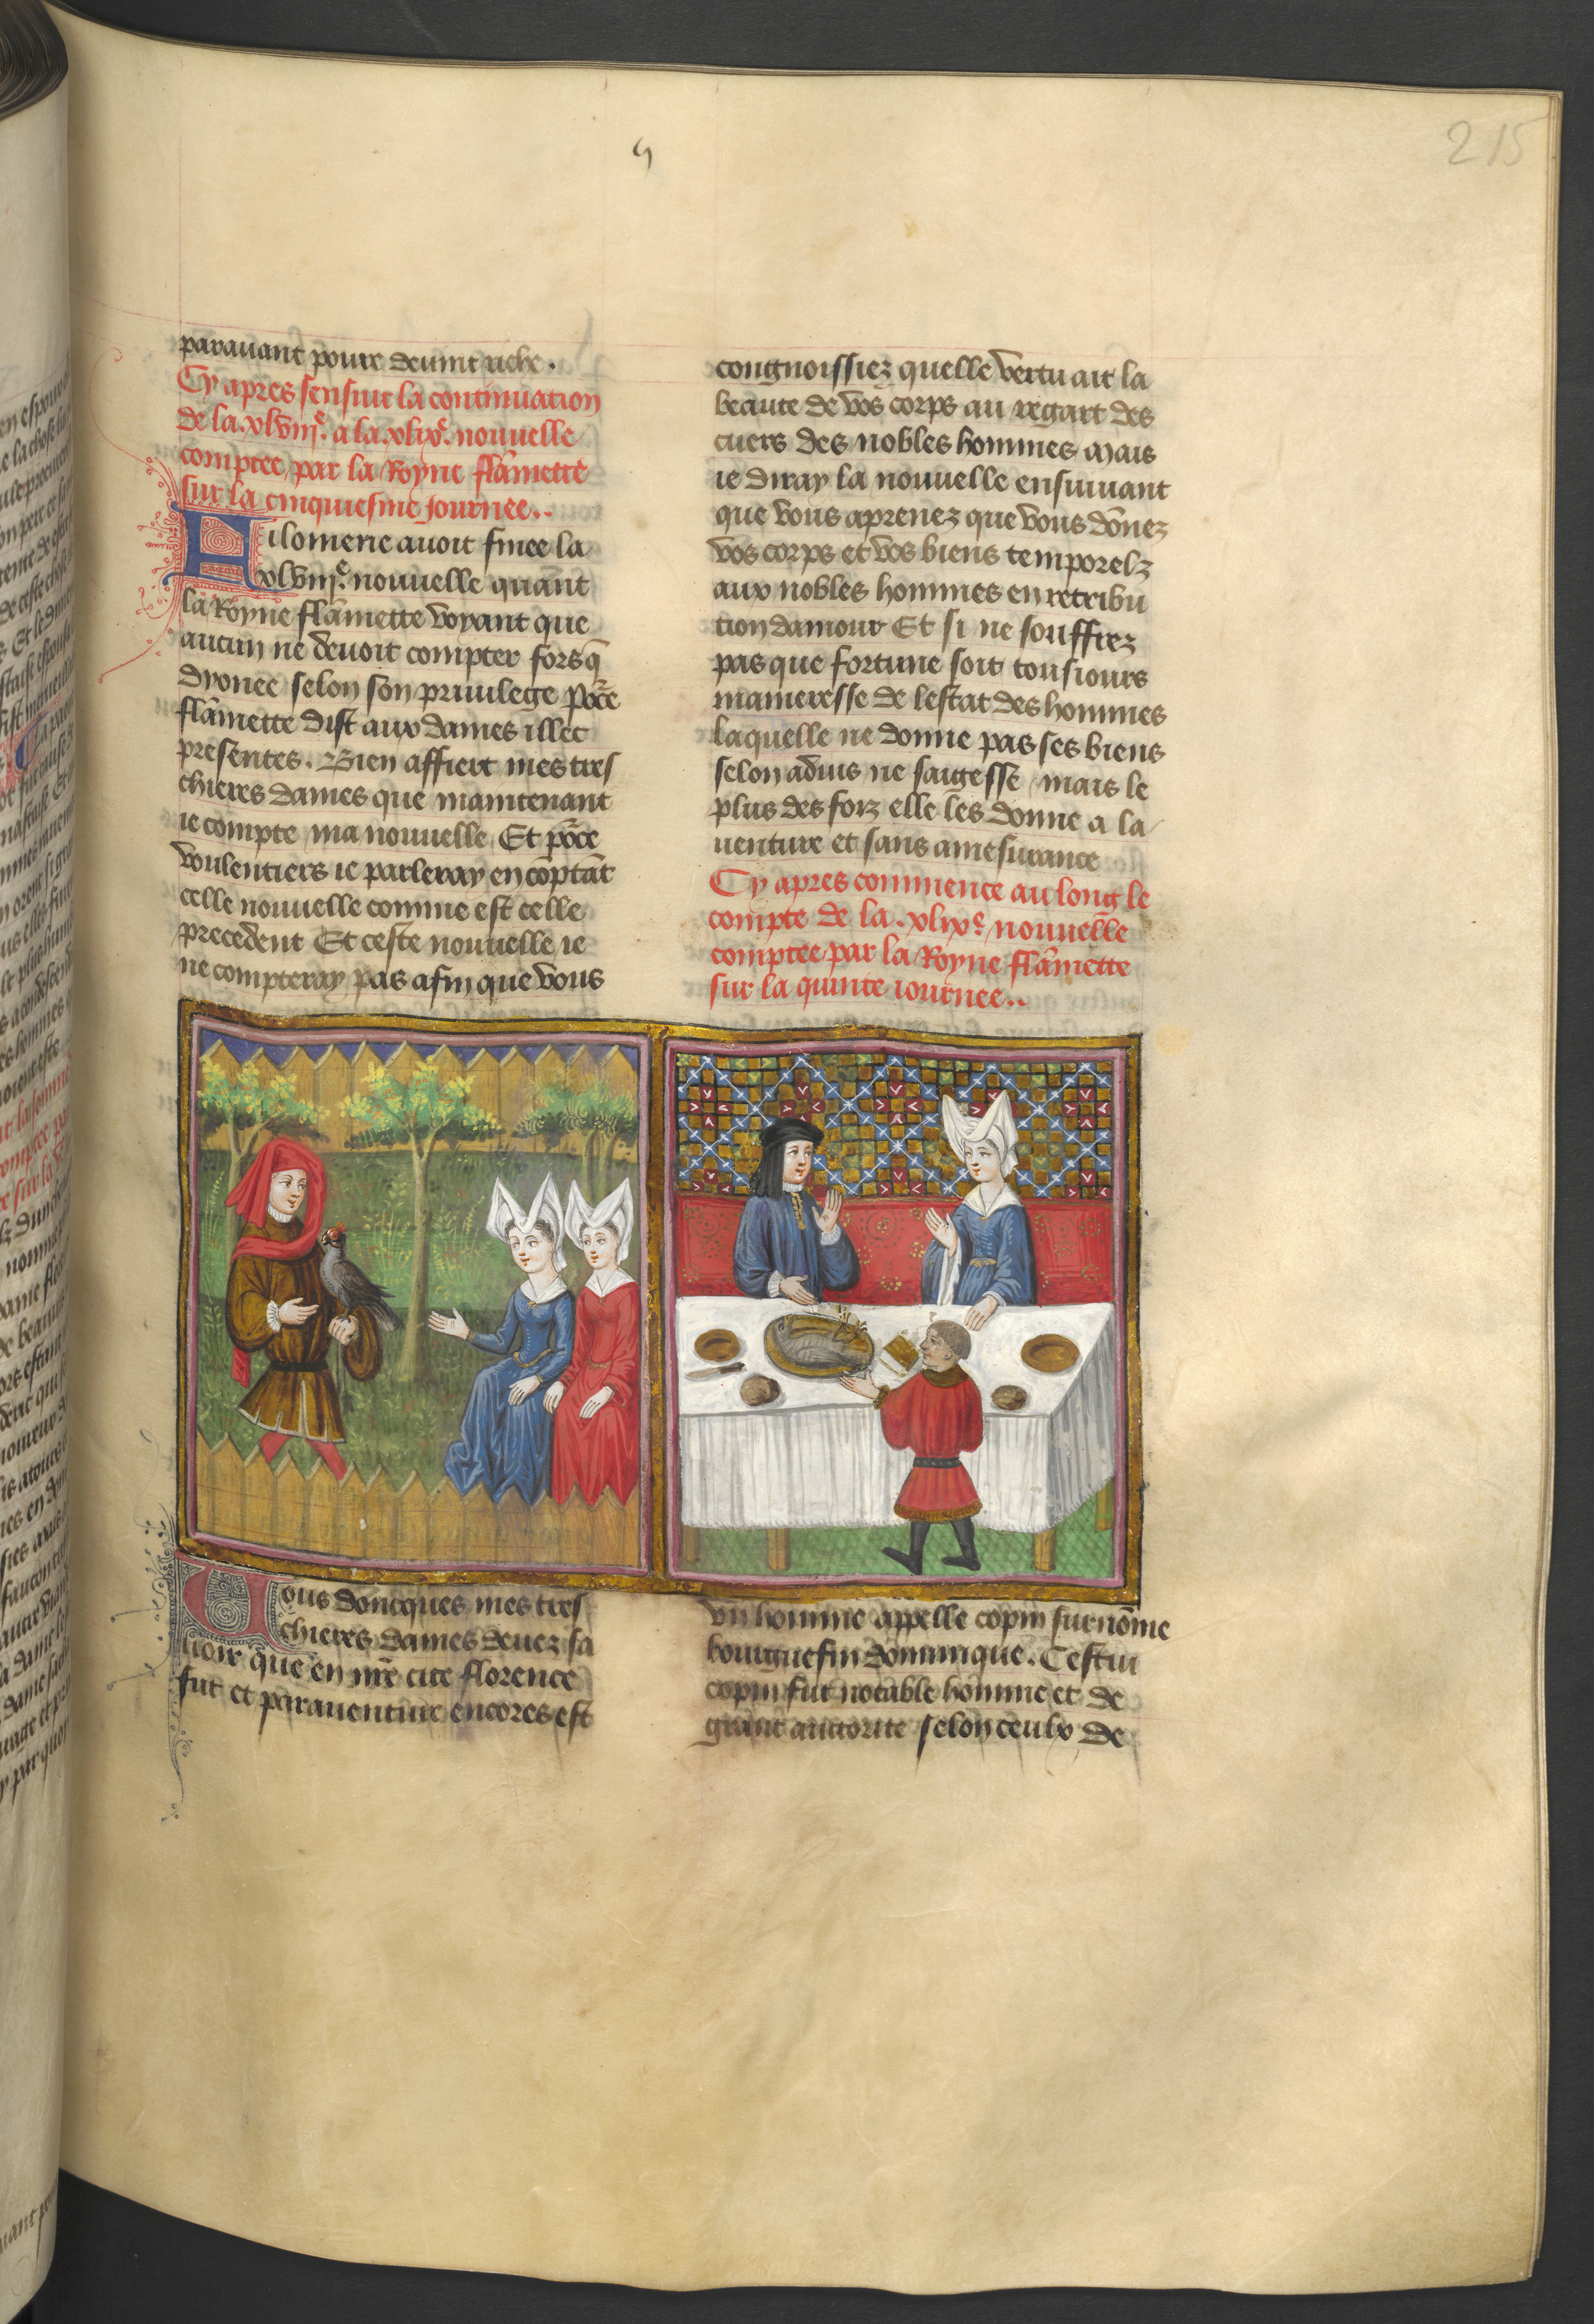 215
parauant poure deuint riche.
Cy apres sensuit la continuation
de la .xlviije. a la .xlixe. nouuelle
comptee par la Royne flāmette
sur la cinquiesme journee..
Filomene auoit finee la
xlviije. nouuelle quant
la Royne flāmette voyant que
aucun ne deuoit compter fors q̄
dyonee selon son priuilege
flāmette dist aux dames illec
presentes. Bien affiert mes tres
chieres dames que maintenant
ie compte ma nouuelle Et
voulentiers ie parleray en cōptāt
celle nouuelle comme est celle
precedent Et ceste nouuelle ie
ne compteray pas afin que vous
congnoissiez quelle vertu ait la
beaute de vos corps au regart des
cuers des nobles hommes Mais
ie diray la nouuelle ensuiuant
que vous aprenez que vous dōnez
vos corps et vos biens temporelz
aux nobles hommes en retribu
tion damour Et si ne souffrez
pas que fortune soit tousiours
maineresse de lestat des hommes
laquelle ne donne pas ses biens
selon aduis ne saigesse mais le
plus des foiz elle les donne a la
uenture et sans amesurance
Cy apres commence au long le
compte de la .xlixe. nouuelle
comptee par la Royne flāmette
sur la quinte iournee..
Vous doncques mes tres
chieres dames deuez sa
uoir que en nr̄e cite florence
fut et parauenture encores est
vn homme appelle copin surnōme
bourguesin dominique. Cestui
copin fut notable homme et de
grant auctorite selon ceulx de